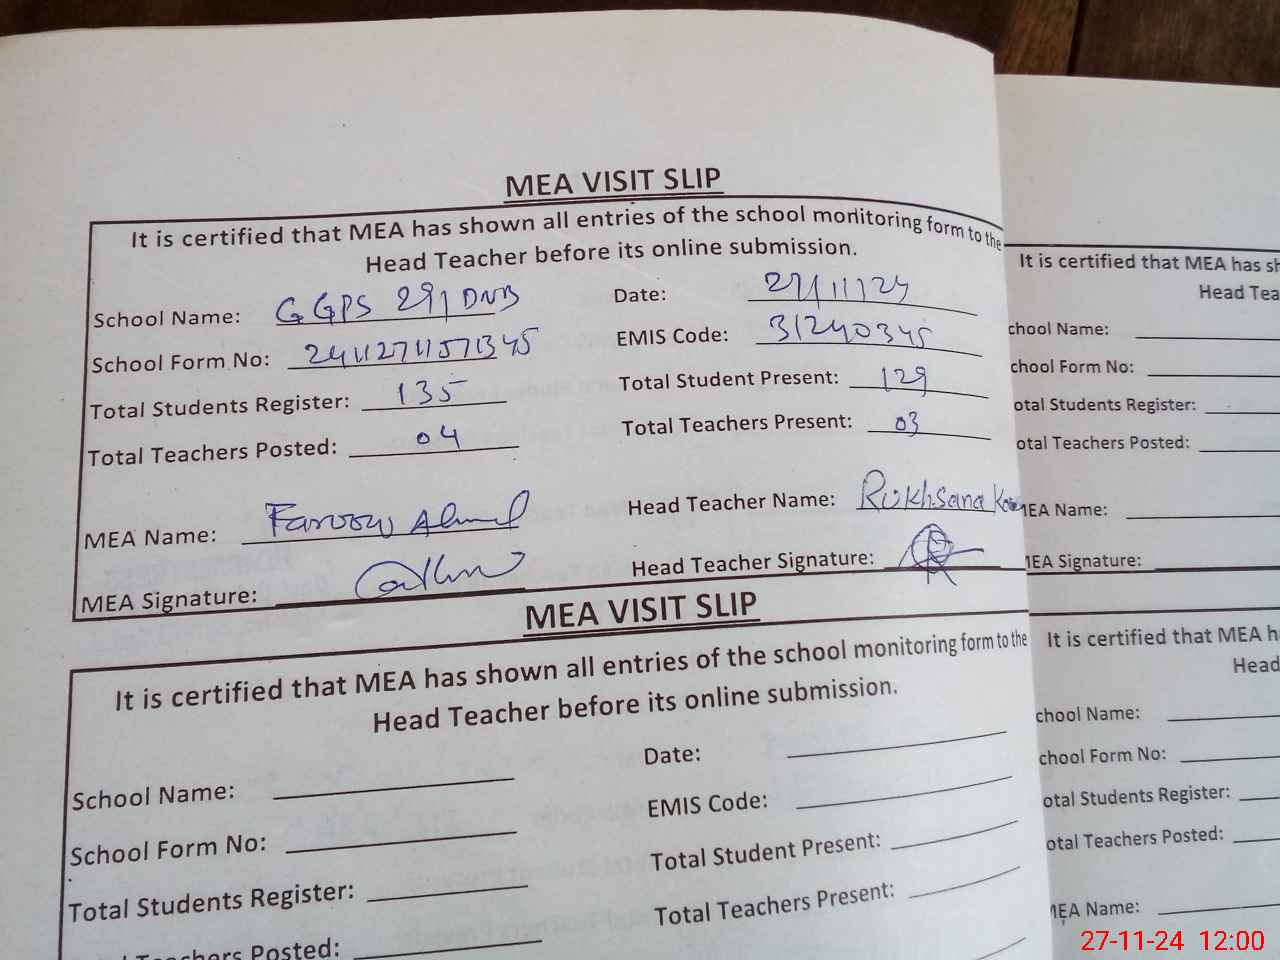 MEA VISIT SLIP
It is certified that MEA has shown all entries of the school monitoring form to the
Head Teacher before its online submission.
School Name: GGPS 29/DNB Date: 27/11/24
School Form No: 241127115 71345 EMIS Code: 31240345
Total Students Register: 135 Total Student Present: 129
Total Teachers Posted: 04 Total Teachers Present: 03
MEA Name: Farooq Ahmed Head Teacher Name: Rukhsana
MEA Signature: Head Teacher Signature:
MEA VISIT SLIP
It is certified that MEA has shown all entries of the school monitoring form to the
Head Teacher before its online submission.
School Name: Date:
School Form No: EMIS Code:
Total Students Register: Total Student Present:
Teachers Posted: Total Teachers Present:
It is certified that MEA has sh
Head Tea
chool Name:
chool Form No:
otal Students Register:
otal Teachers Posted:
MEA Name:
MEA Signature:
It is certified that MEA h
Head
chool Name:
chool Form No:
otal Students Register:
otal Teachers Posted:
MEA Name:
27-11-24 12:00